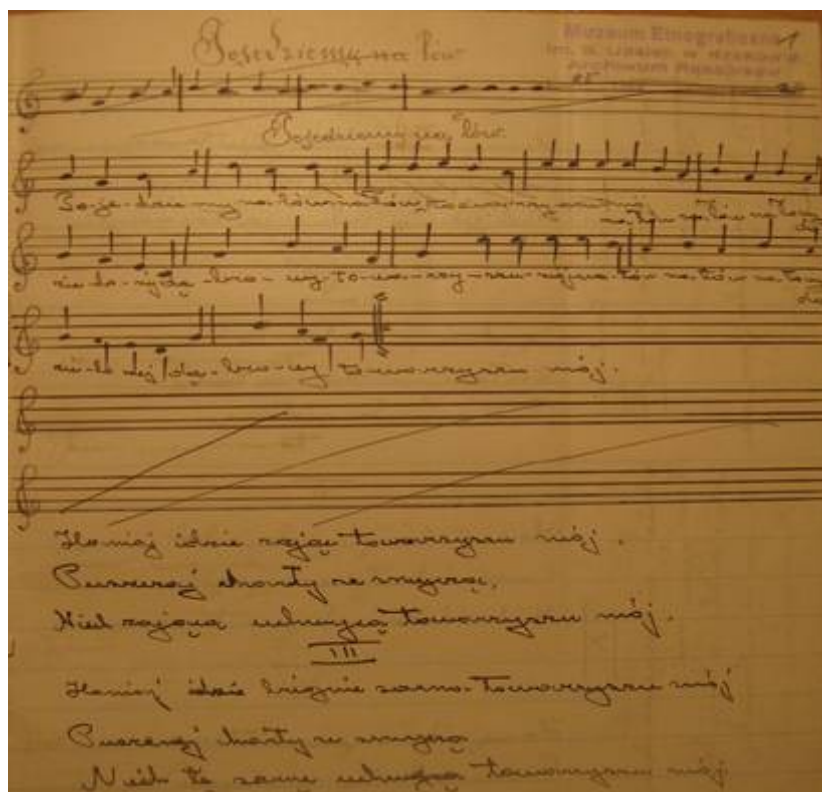 Pojedziemy na łów
Muzeum Etnograficzne 1
im. S. Udzieli w Krakowie
Pojedziemy na łów
Po-je-dzie my na łów na łów towarzyszu mój
na łów na łów na łowy
do
zie-lo-nej dą-bro-wy to-wa-rzy-szu mój na łów na łów na łowy
do
zie-lo nej dą-bro-wy towarzyszu mój.
Hanioj idzie zając towarzyszu mój.
Puszczaj charty ze smyczą,
Niech zająca uchwycą towarzyszu mój.
III
Hanioj idzie sarna towarzyszu mój
Puszczaj charty ze smyczą
Niech tę sarnę uchwycą towarzyszu mój